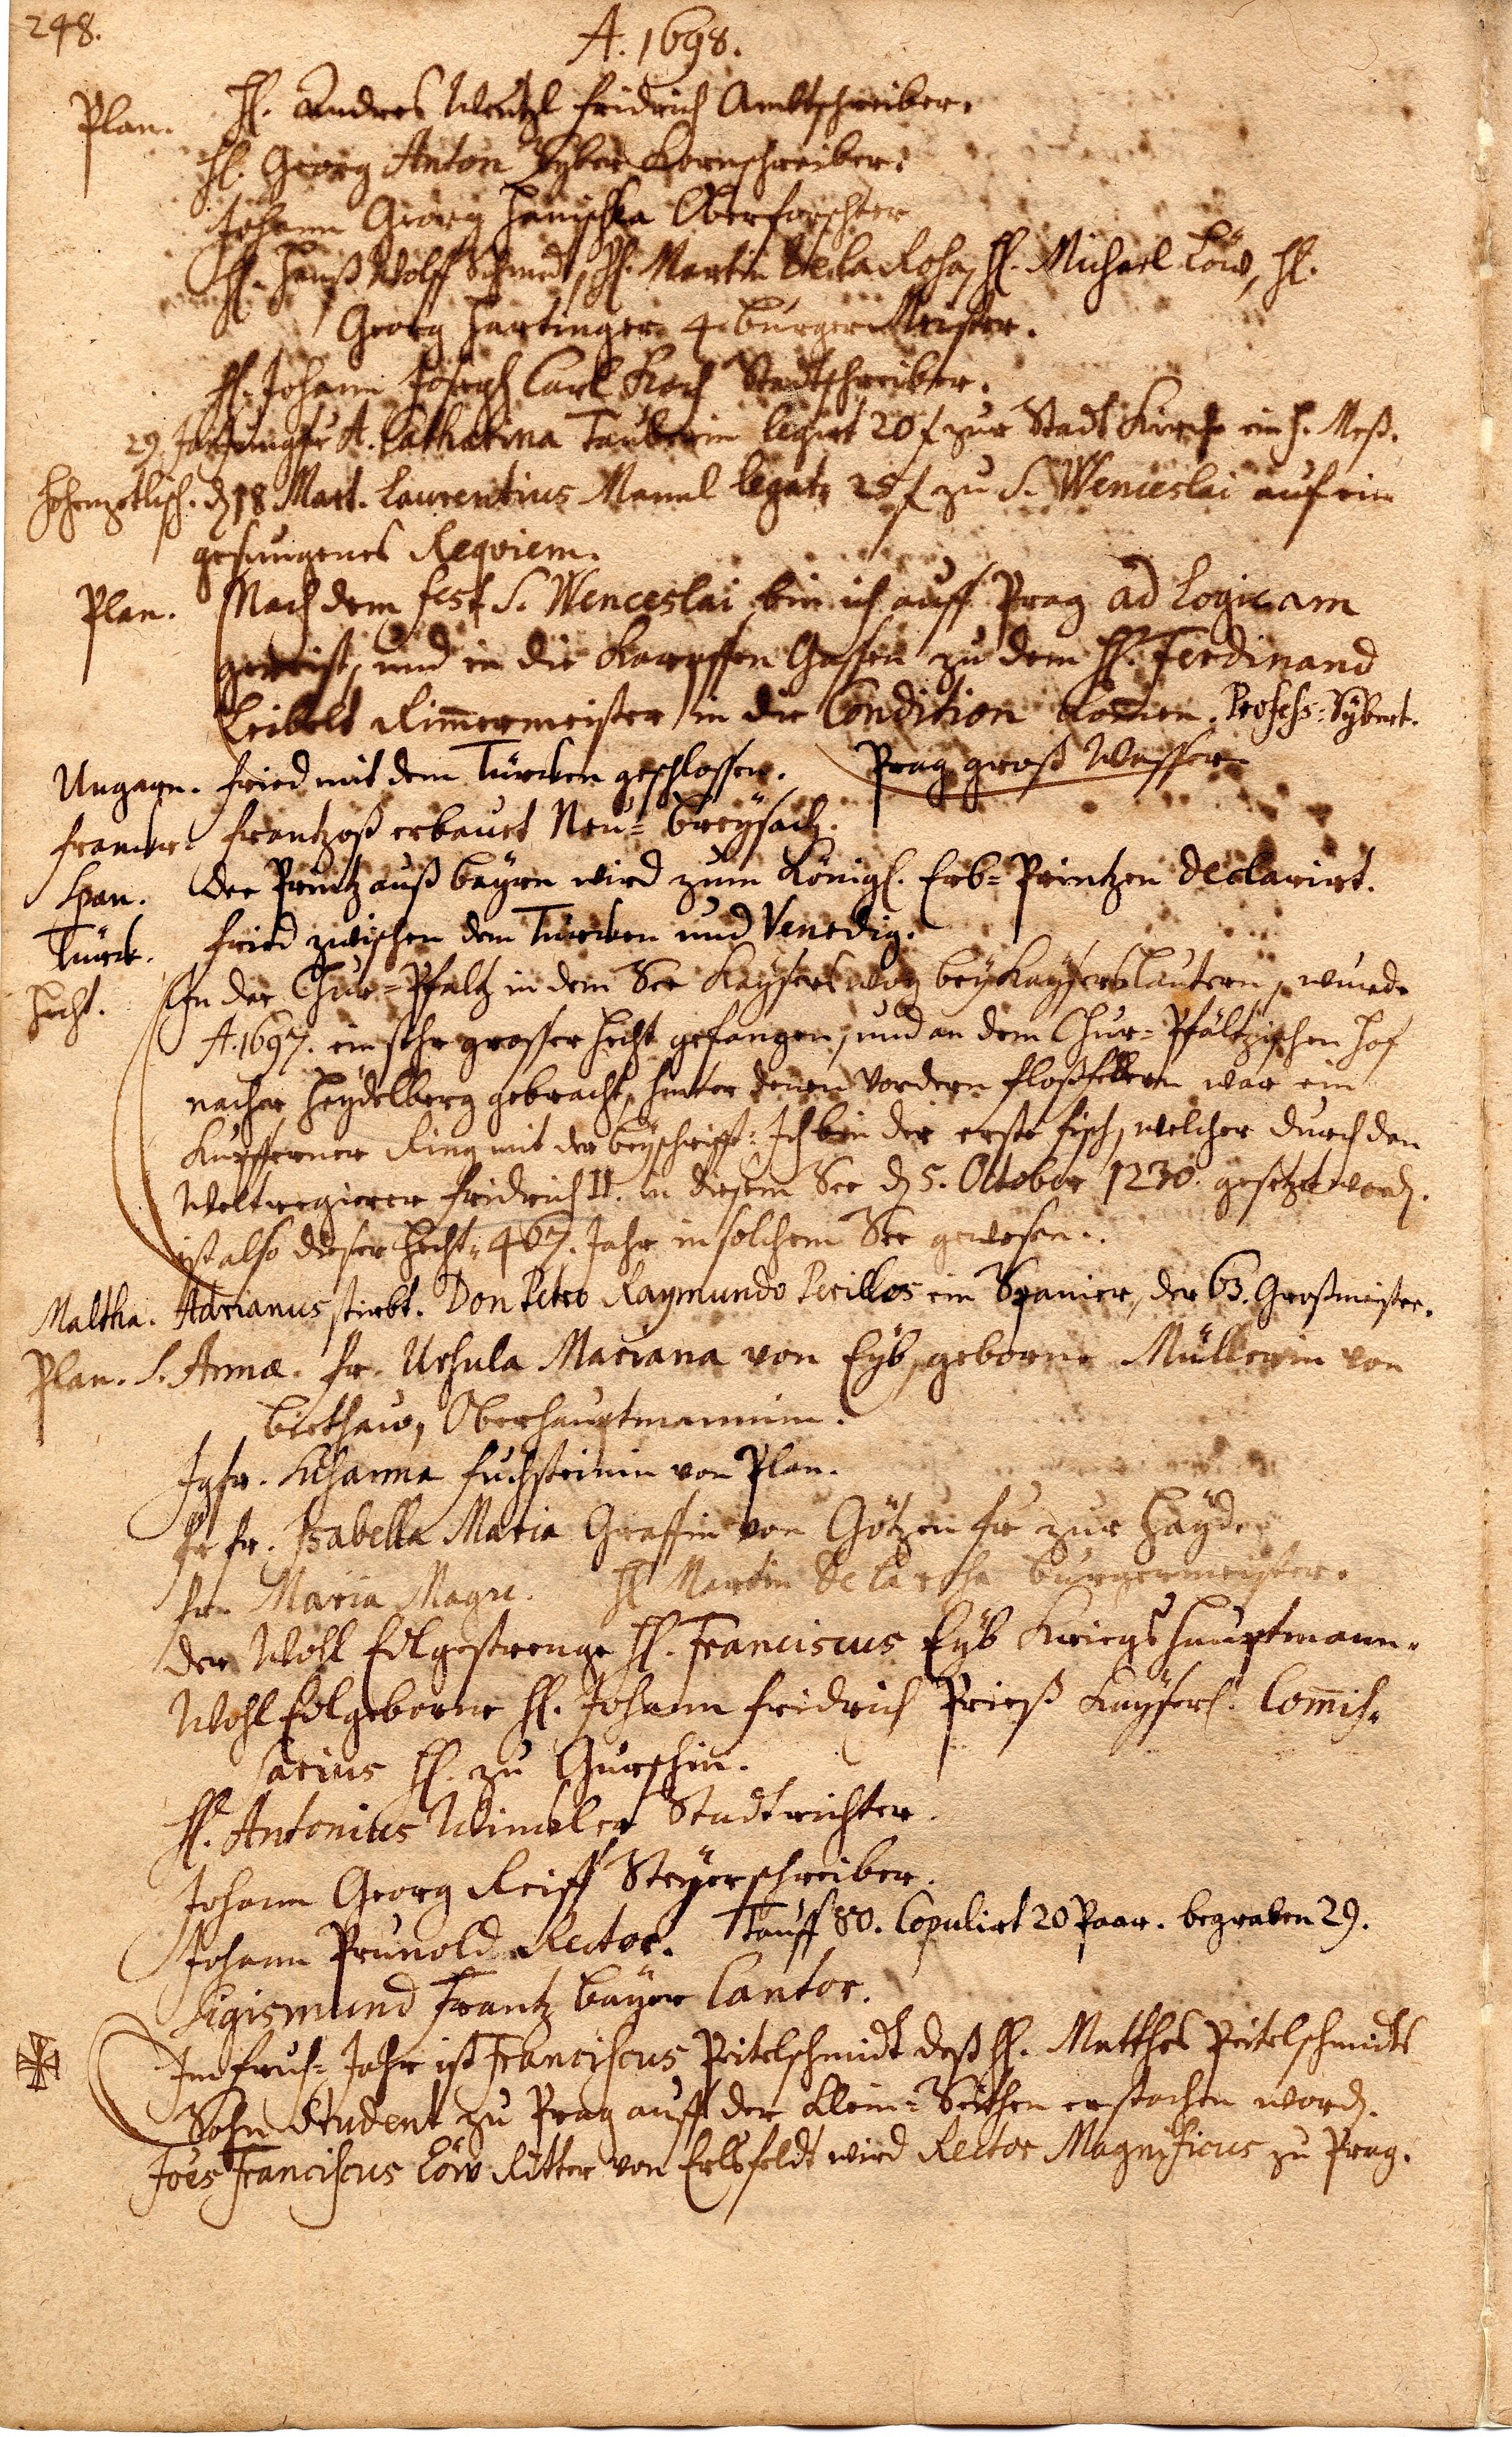 248.
A. 1698.
Plan. H. Andres Wentzl Fridrich Ambtschreiber.
H. Georg Anton Kornschreiber.
Johann Georg Hanischka Oberforschter
H. Hanß Wolff Schmidt, H. Martin De la Rosa, H. Michael Löw, H.
Georg Hartinger 4 burgerMeister.
H. Johann Joseph Carl Koch Stadtschreiber.
29. Jungfr A. Catharina Tauberin legirt 20 f zur Stadt Kirch ein h. Meß.
d 18 Mart. Laurentius Mannl legat 25 f zu S. Wenceslai auf ein
gesungenes Reqviem.
Plan. Nach dem fest S. Wenceslai bin ich auff Prag ad Logicam
gereist, und in die Karpffen Gassen zu dem H. Ferdinand
Leibelt Rimmermeister in die Condition komen. Profess: Sybert.
Ungarn. Fried mit dem Türcken geschlossen. Prag groß Wasser
Franckr. Frantzoß erbauet Neu=breysach.
Span. Der Printz auß bayrn wird zum Königl. Erb=Printzen declarirt.
Türck. Fried zwischen dem Türcken und Venedig.
Hecht. In der Chur=Pfaltz in dem See Kayserswog bey Kayserslautern, wurde
A. 1697. ein sehr grosser Hecht gefangen, und an dem Chur=Pfältzischen Hof
nacher Heydelberg gebracht, hinter denen Vordern floßfedern war ein
Kupfferner Ring mit der beyschrifft: Ich bin der erste fisch, welcher durch den
Weltregierer Fridrich II. in diesem See d 5. October 1230. gesetzt word.
ist also dieser Hecht 467. Jahr in solchem See gewesen.
Maltha. Adrianus stirbt. Don Petro Raymundo Perillos ein Spanier, der 63. Großmeister.
Plan. S. Annæ. Fr. Ursula Mariana von Eyb, geborne Müllerin von
birthaw, Oberhauptmannin.
Jgfr. Susanna Fuchssteinin von Plan.
Fr Fr. Isabella Maria Graffin von Götzen Fr zur Hayde
Fr. Maria Magn. H Martin De la rosa burgermeister.
Der Wohl Edlgestrenge H. Franciscus Eyb Kriegshauptmann.
Wohl Edlgeborne H. Johann Fridrich Prieß Kayserl. Commis=
sarius H. zu Gurschin.
H. Antonius Winckler Stadtrichter.
Johann Georg Reiff Steyerschreiber.
Johann Prunold Rector. Tauff 80. Copulirt 20 Paar. begraben 29.
Sigismund Frantz bayer Cantor.
Im fruh=Jahr ist Franciscus Peitelschmidt deß H. Matthes Peitelschmidts
Sohn Student zu Prag auff der klein=Seithen erstochen word.
Joes Franciscus Löw Ritter von Erlsfeldt wird Rector Magnificus zu Prag.